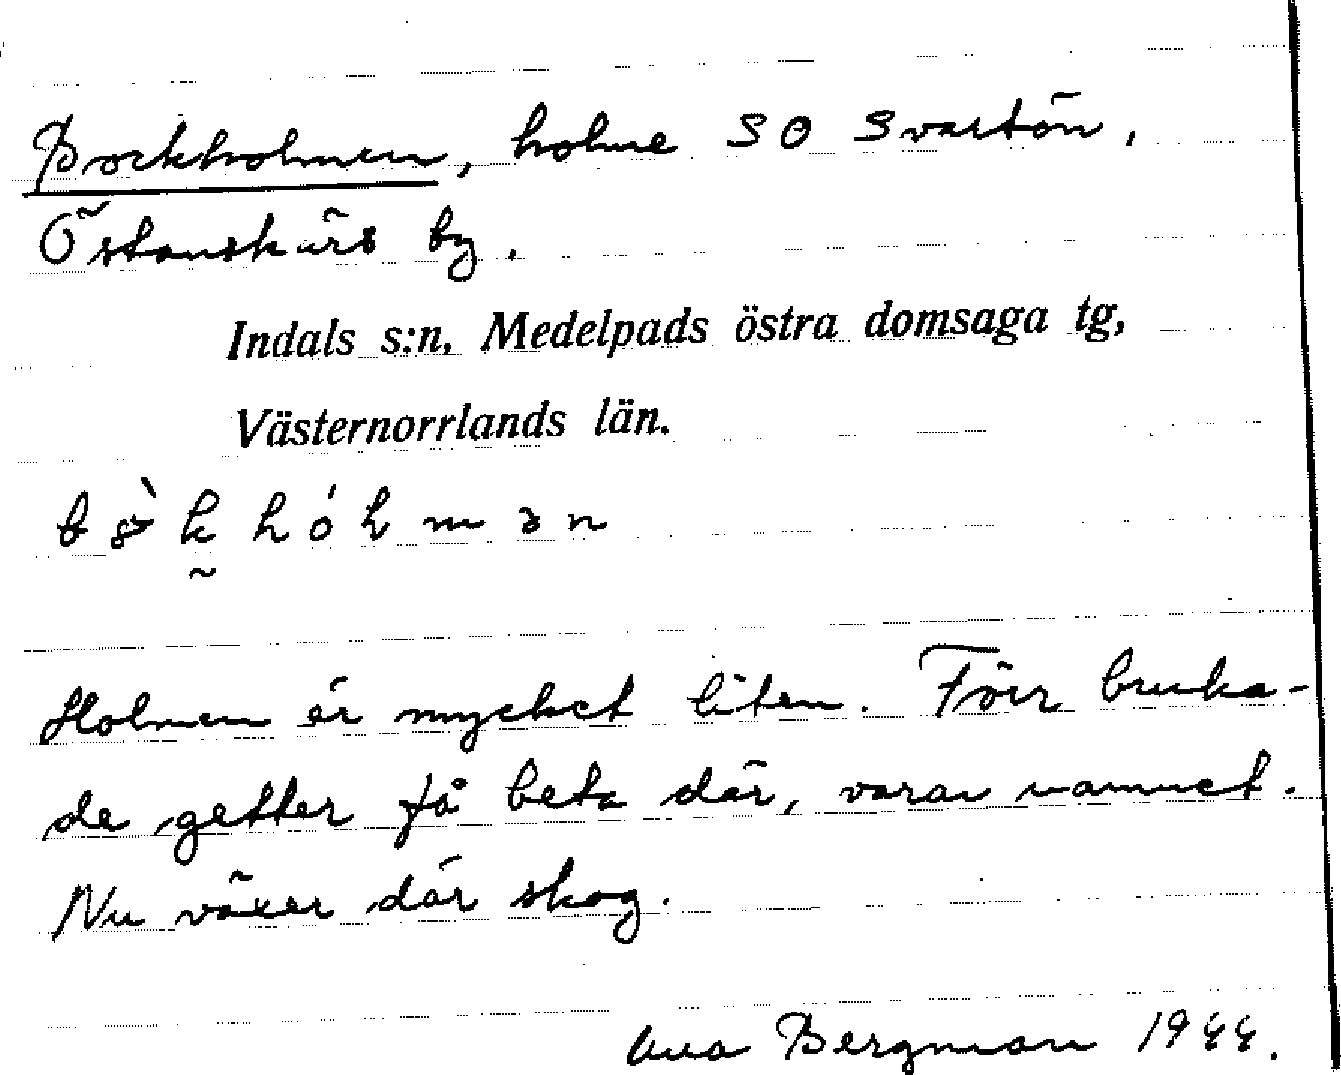 Bockholmen, holme SO Svartön,
Östanskärs by.
Indals s:n, Medelpads östra domsaga tg,
Västernorrlands län.
Holmen är mycket liten. Förr bruka-
de getter få beta där, varav namnet.
Nu växer där skog.
Bergman 1944.